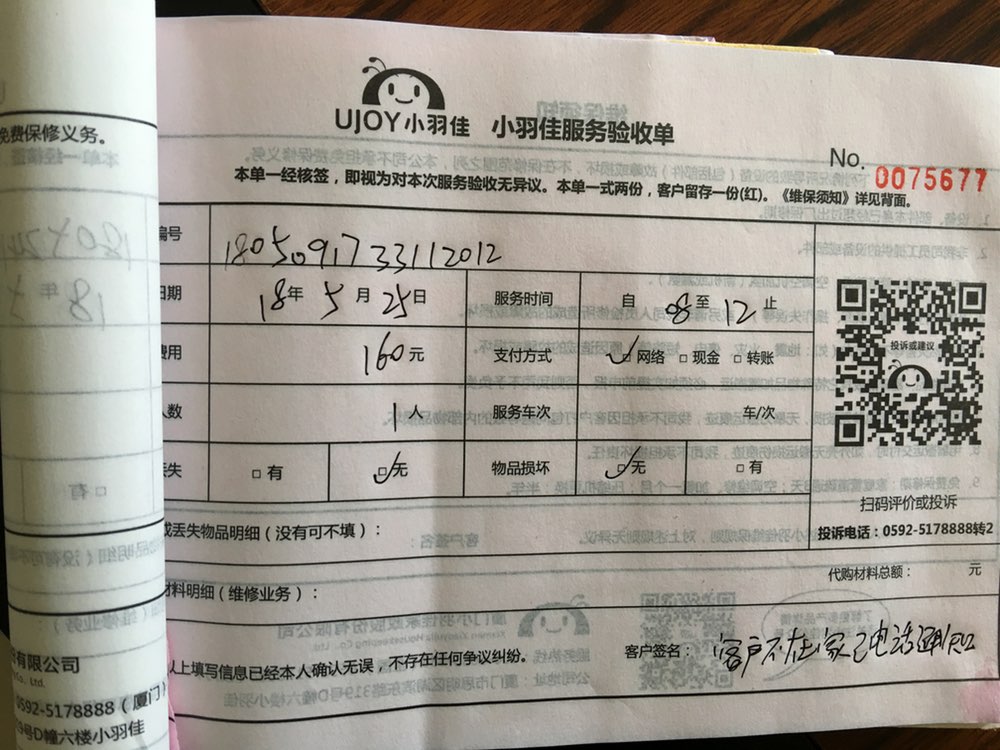 UJOY小羽佳 小羽佳服务验收单
No. 0075677
本单一经核签，即视为对本次服务验收无异议。本单一式两份，客户留存一份(红)。《维保须知》详见背面。
编号 1805091733112012
日期 18年 5月 25日 服务时间 自 08 至 12 止
费用 160元 支付方式 ☑网络 □现金 □转账
人数 1人 服务车次 车/次
丢失 □有 ☑无 物品损坏 ☑无 □有
投诉或建议
扫码评价或投诉
投诉电话：0592-5178888转2
或丢失物品明细（没有可不填）：
代购材料总额： 元
材料明细（维修业务）：
以上填写信息已经本人确认无误，不存在任何争议纠纷。
客户签名： 客户不在家已电话通知
免费保修义务。
有限公司
Co., Ltd.
0592-5178888（厦门
19号D幢六楼小羽佳